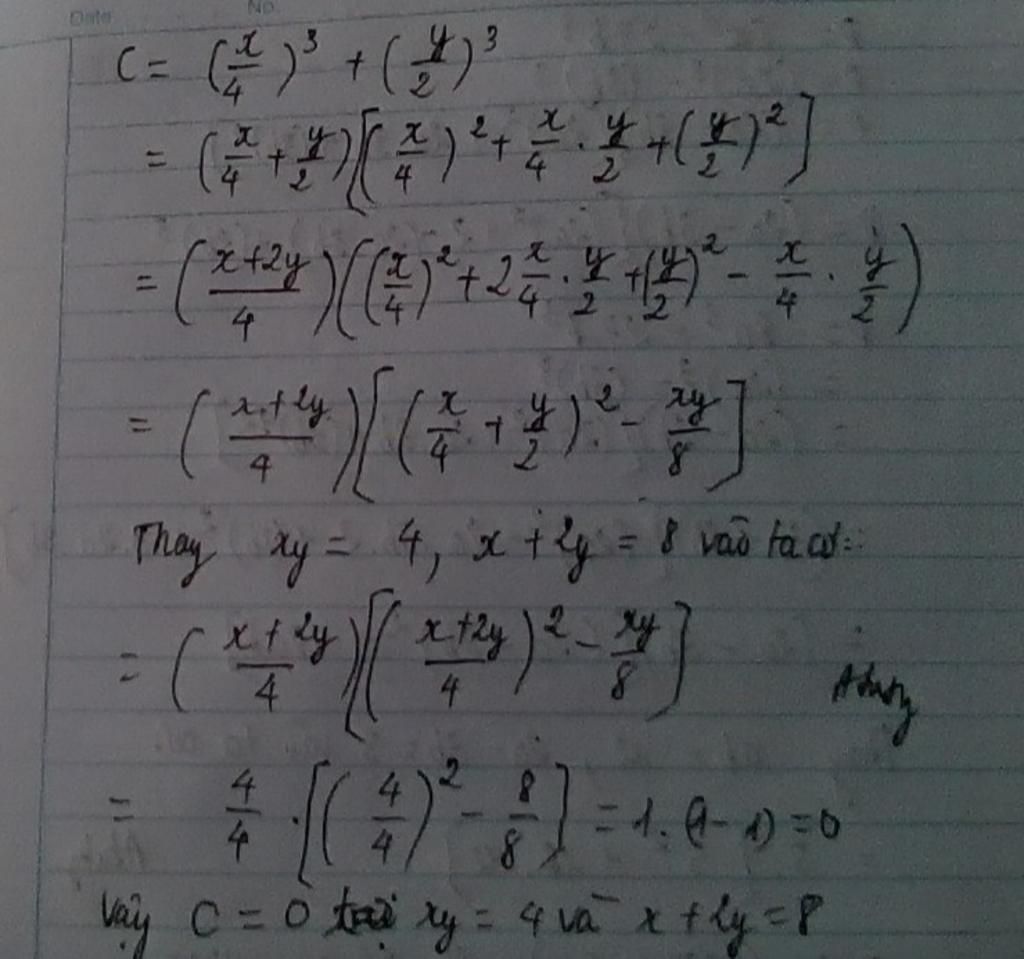 Date No
C = (x/4)³ + (y/2)³
= (x/4 + y/2)[(x/4)² + x/4 . y/2 + (y/2)²]
= ((x+2y)/4)((x/4)² + 2 x/4 . y/2 + (y/2)² - x/4 . y/2)
= ((x+2y)/4)[(x/4 + y/2)² - xy/8]
Thay xy = 4, x + 2y = 8 vào ta có:
= ((x+2y)/4)[((x+2y)/4)² - xy/8]
= 4/4 . [(4/4)² - 8/8] = 1. (1 - 1) = 0
Vậy C = 0 xy = 4 và x + 2y = 8